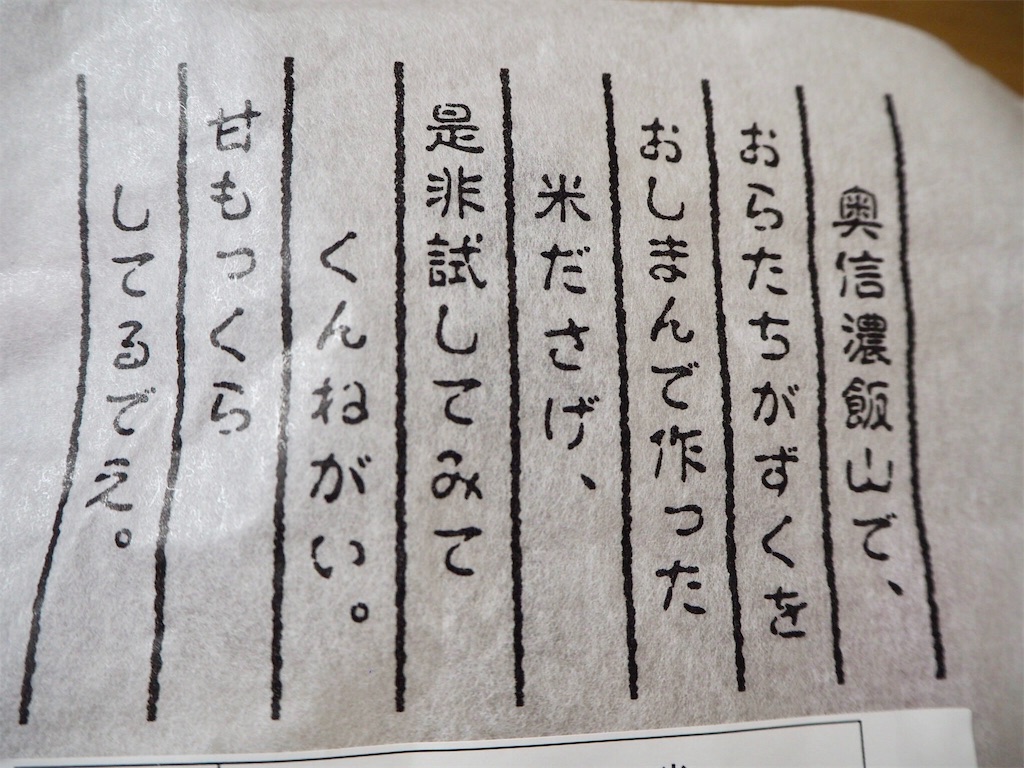 奥信濃飯山で、
おらたちがずくを
おしまんで作った
米ださげ、
是非試してみて
くんねがい。
甘もっくら
してるでえ。